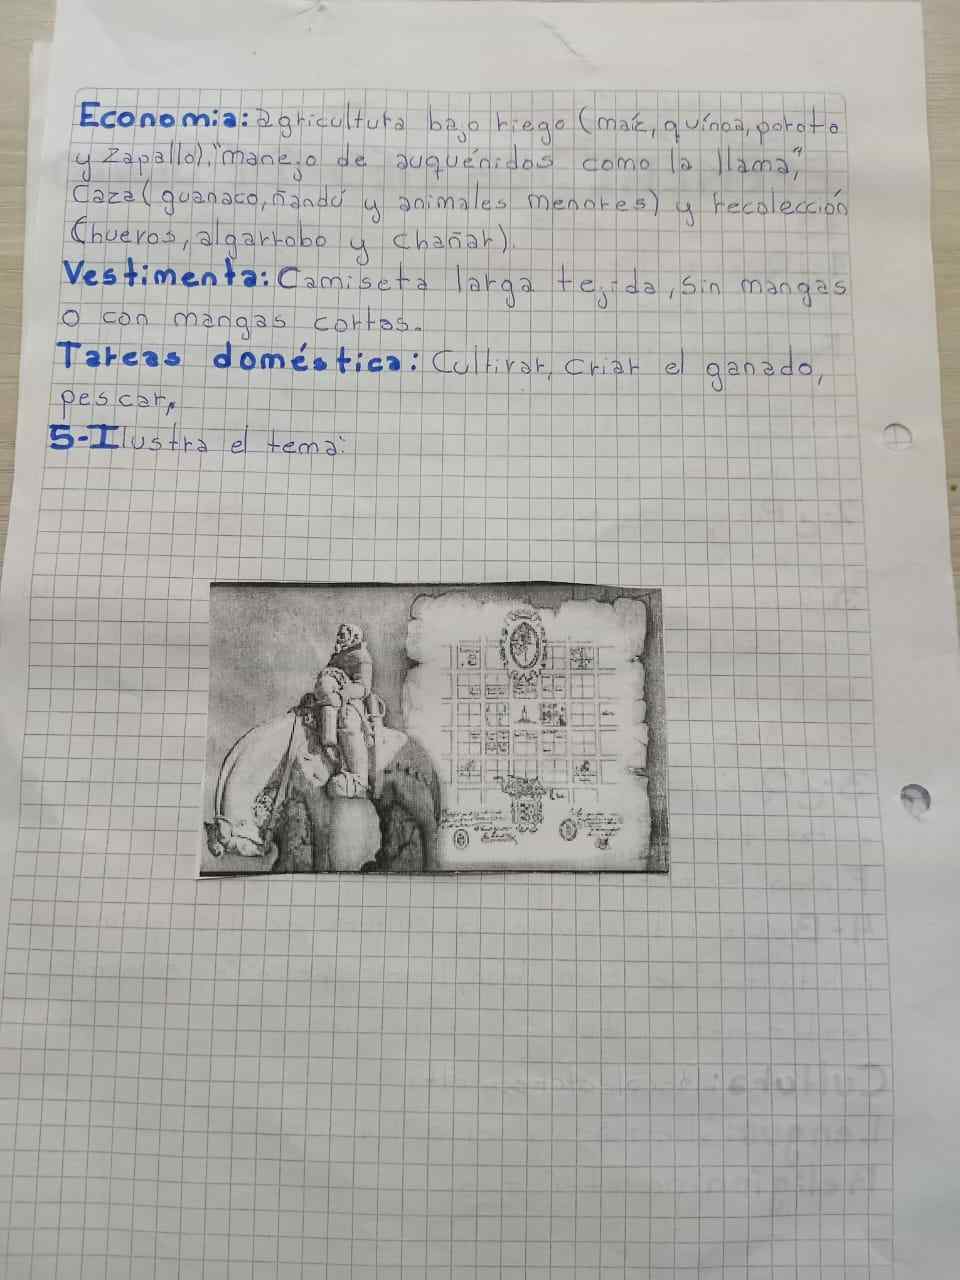 Economia: agricultura bajo riego (maíz, quínoa, poroto
y zapallo), "manejo de auquénidos como la llama",
caza (guanaco, ñandú y animales menores) y recolección
(hueros, algarrobo y chañar).
Vestimenta: Camiseta larga tejida, sin mangas
o con mangas cortas.
Tareas doméstica: Cultivar, criar el ganado,
pescar,
5-Ilustra el tema: